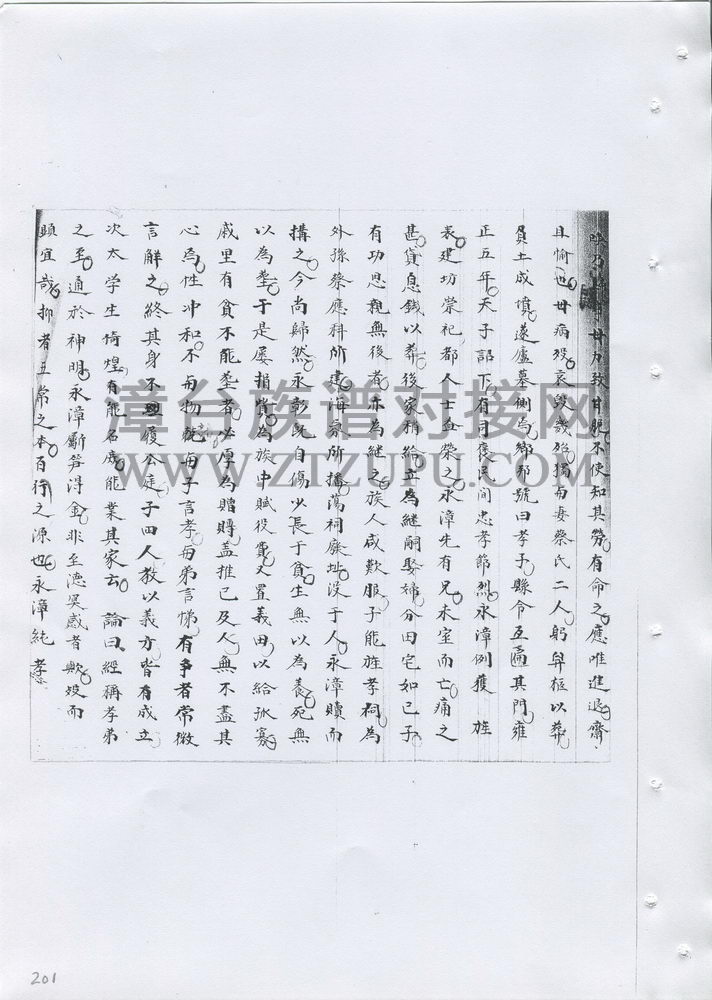 毋力致甘毳不使知其勞有命之應唯進退齋
且愉也毋病歿哀毀幾殆獨與妻蔡氏二人躬舁柩以葬
負土成墳遂廬墓側焉鄉邦號曰孝子縣令亟扁其門雍
正五年天子詔下有司復民間忠孝節烈永漳例獲旌
表建坊崇祀都人士並榮之永漳先有兄未室而亡痛之
甚貸息錢以葬後家稍給立為繼嗣娶婦分田宅如己子
有功思親無後者亦為繼之族人咸歎服子能旌孝祠為
外孫蔡應科所建海氛所播蕩祠廢址沒于人永漳贖而
搆之今尚歸然永彰既自傷少長于貧生無以為養死無
以為塟于是屢捐貲為族中賦役費又置義田以給孤寡
戚里有貧不能塟者必厚為贈賻蓋推己及人無不盡其
心焉性冲和不與物競與子言孝與弟言悌有爭者常微
言解之終其身不履公庭子四人教以義方皆有成立
次太学生倚煌有能名克能業其家云 論曰經稱孝弟
之至通於神明永漳斸笋得金非至德冥感者歟歿而
頭宜哉抑孝者五常之本百行之源也永漳純孝
漳台族谱对接网
WWW.ZTZUPU.COM
201